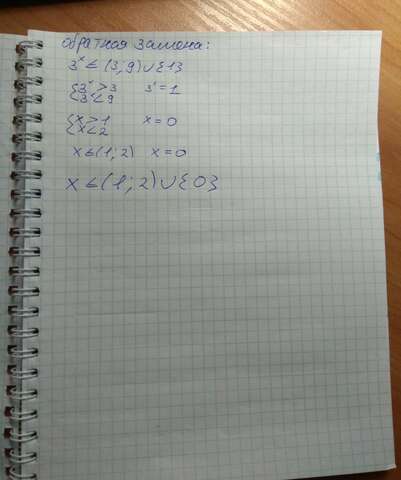 обратная замена:
3ˣ ∈ (3; 9) ∪ {1}
{3ˣ > 3 3ˣ = 1
{3ˣ < 9
{x > 1 x = 0
{x < 2
x ∈ (1; 2) x = 0
x ∈ (1; 2) ∪ {0}